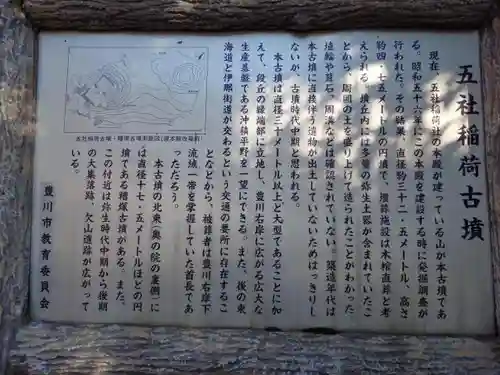 五社稲荷古墳
現在、五社稲荷社の本殿が建っている山が本古墳であ
る。昭和五十六年にこの本殿を建設する時に発掘調査が
行われた。その結果、直径約三十二・五メートル、高さ
約四・七五メートルの円墳で、埋葬施設は木棺直葬と考
えられる。墳丘内には多量の弥生土器が含まれていたこ
とから、周囲の土を盛り上げて造られたことがわかった
埴輪や葺石、周溝などは確認されていない。築造年代は
本古墳に直接伴う遺物が出土していないためはっきりし
ないが、古墳時代中期と思われる。
本古墳は直径三十メートル以上と大型であることに加
えて、段丘の縁端部に立地し、豊川右岸に広がる広大な
生産基盤である沖積平野を一望にできる。また、後の東
海道と伊那街道が交わるという交通の要所に存在するこ
となどから、被葬者は豊川右岸下
流域一帯を掌握していた首長であ
ったろう。
本古墳の北東(奥の院の裏側)に
は直径十七・五メートルほどの円
墳である糟塚古墳がある。また、
この付近は弥生時代中期から後期
の大集落跡、欠山遺跡が広がって
いる。
豊川市教育委員会
五社稲荷古墳・糟塚古墳測量図